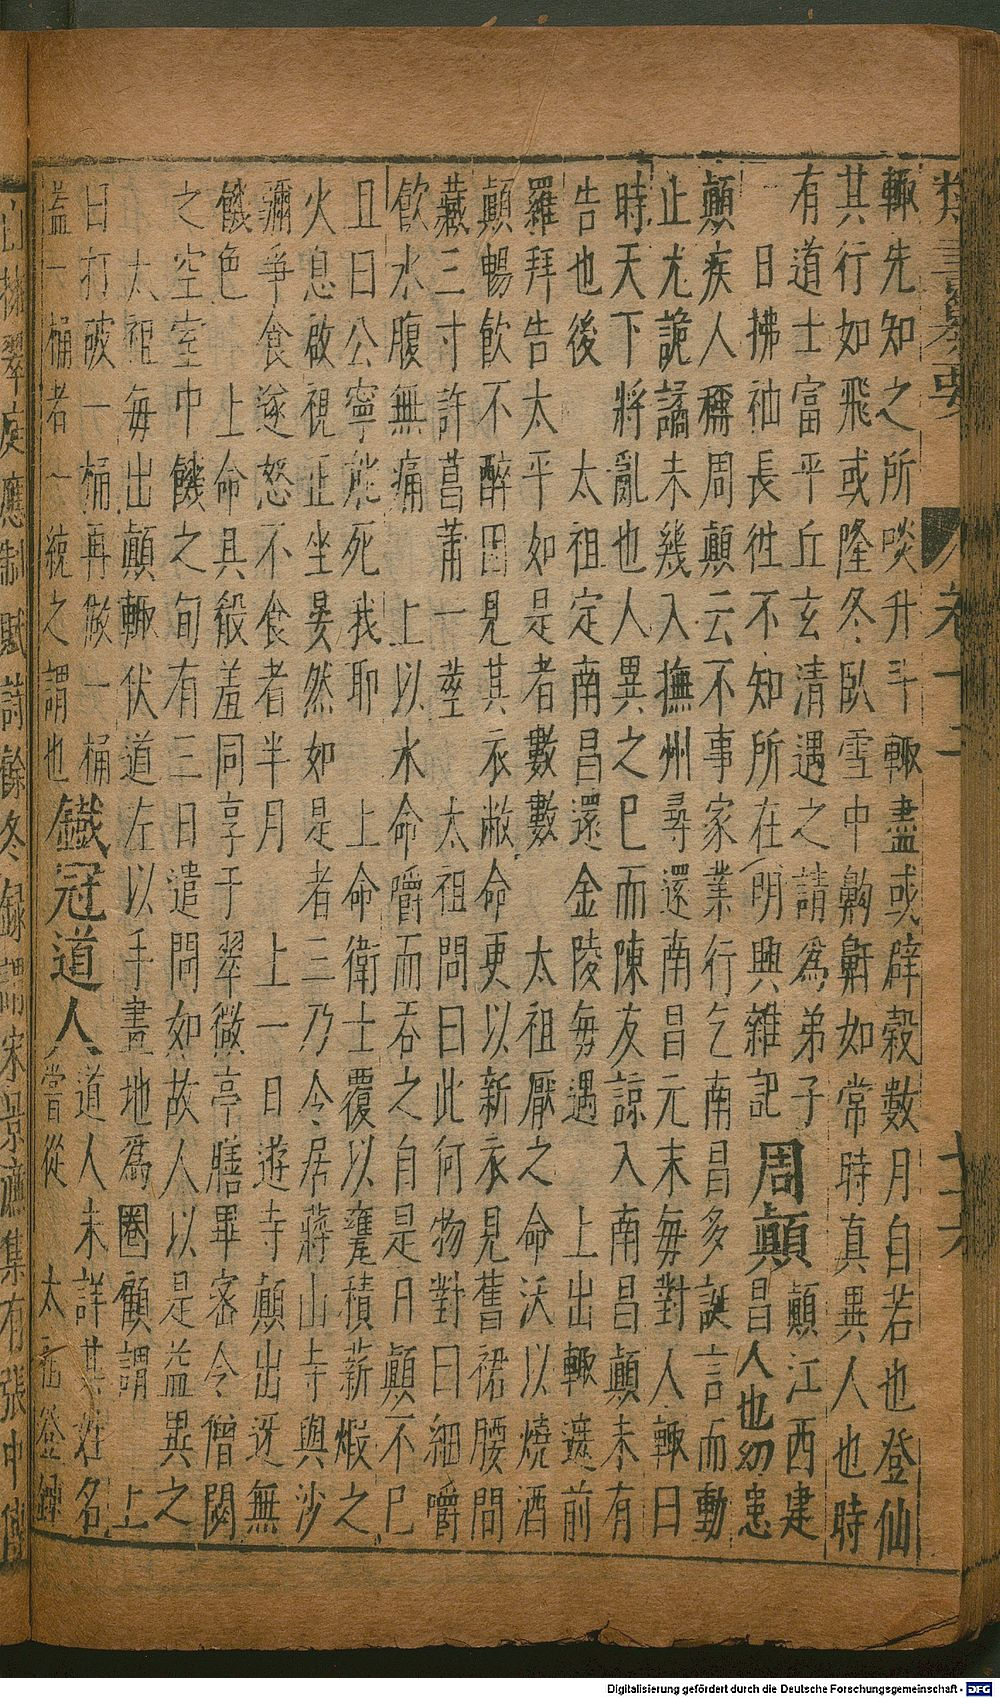 卷十二
十六
輙先知之所啖升斗輙盡或辟穀數月自若也登仙
其行如飛或隆冬臥雪中齁鼾如常時真異人也時
有道士富平丘玄清遇之請為弟子
日拂袖長徃不知所在明興雜記周顛顛江西建昌人也幼患
顛疾人稱周顛云不事家業行乞南昌多誕言而動
止尤詭譎未幾入撫州尋還南昌元末每對人輙曰
時天下將亂也人異之巳而陳友諒入南昌顛未有
告也後 太祖定南昌還金陵每遇 上出輙遮前
羅拜告太平如是者數數 太祖厭之命沃以燒酒
顛暢飲不醉因見其衣敝命更以新衣見舊裙腰問
藏三寸許菖蒲一莖 太祖問曰此何物對曰細嚼
飲水腹無痛 上以水命嚼而吞之自是日顛不巳
且曰公寧能死我耶 上命衛士覆以甕積薪煅之
火息啟視正坐晏然如是者三乃令居蔣山寺與沙
彌爭食遂怒不食者半月 上一日遊寺顛出迓無
饑色 上命具殽羞同享于翠微亭膳畢密令僧閟
之空室中餓之旬有三日遣問如故人以是益異之
太祖每出顛輙伏道左以手畫地為圈顧謂 上
曰打破一桶再做一桶
葢一桶者一統之謂也鐵冠道人道人未詳其姓名嘗從 太祖登鍾
山擁翠 應制賦詩餘冬錄謂宋景濂集有張中傳
Digitalisierung gefördert durch die Deutsche Forschungsgemeinschaft - DFG